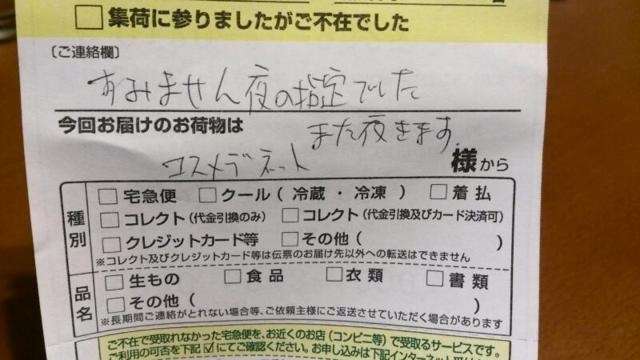 □集荷に参りましたがご不在でした
〔ご連絡欄〕
すみません夜の指定でした
今回お届けのお荷物は
また夜きます
コスメデネット
様から
種別
□宅急便 □クール(冷蔵・冷凍) □着払
□コレクト(代金引換のみ) □コレクト(代金引換及びカード決済可)
□クレジットカード等 □その他( )
※コレクト及びクレジットカード等は伝票のお届け先以外への転送はできません
品名
□生もの □食品 □衣類 □書類
□その他( )
※長期間ご連絡がとれない場合等、ご依頼主様にご返送させていただく場合があります
ご不在で受取れなかった宅急便を、お近くのお店(コンビニ等)で受取るサービスです。
ご利用の可否を下記☑にてご確認ください。お申し込みは下記インターネット